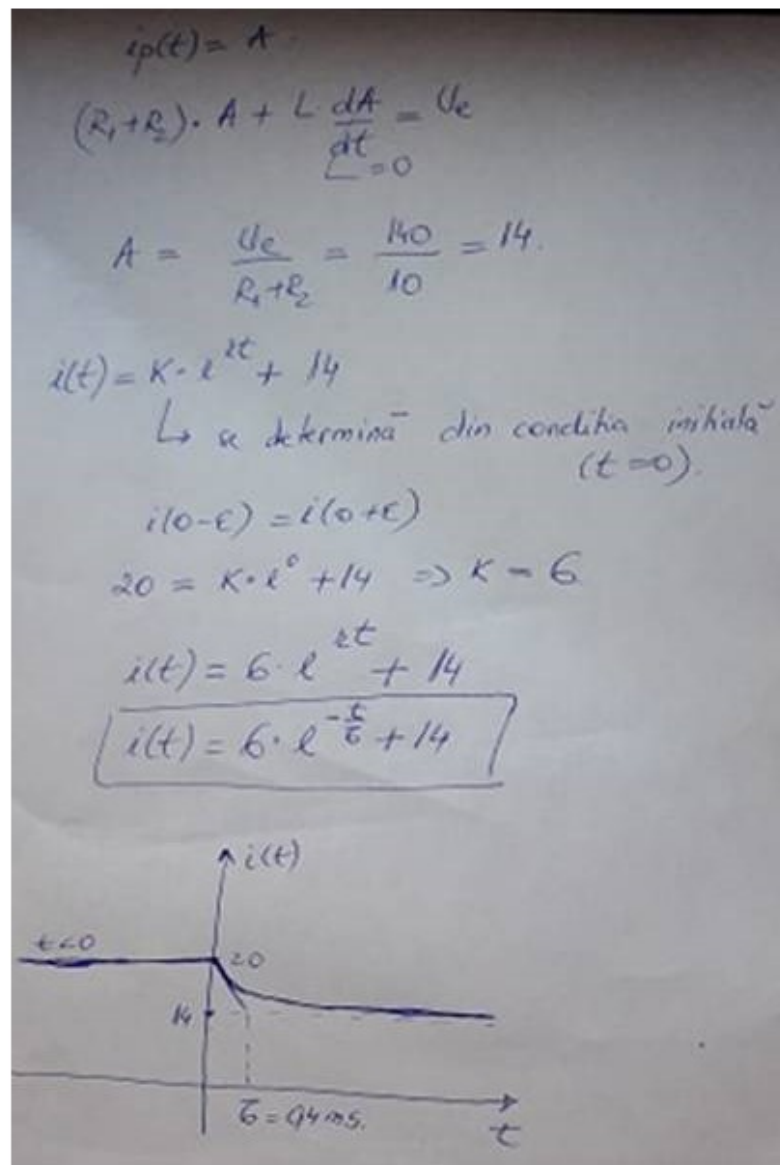 ip(t) = A.
(R₁+R₂)· A + L dA/dt = Ue
= 0
A = Ue/(R₁+R₂) = 140/10 = 14.
i(t) = K· e^rt + 14
↳ se determină din condiția inițială
(t=0).
i(0-ε) = i(0+ε)
20 = K· e⁰ + 14 => K = 6
i(t) = 6· e^rt + 14
i(t) = 6· e^(-t/τ) + 14
i(t)
t<0
20
14
τ = 0,4ms.
t